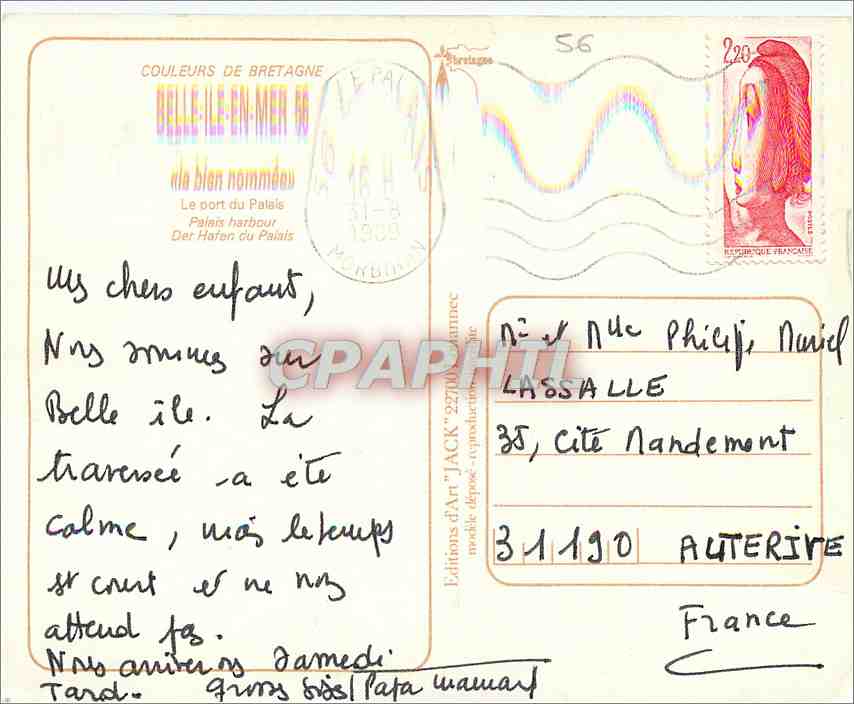 COULEURS DE BRETAGNE
BELLE-ILE-EN-MER 56
«la bien nommée»
Le port du Palais
Palais harbour
Der Hafen du Palais
bretagne
56
56 LE PALAIS
16 H
31-8
MORBIHAN
2,20
POSTES
REPUBLIQUE FRANÇAISE
Mes chers enfants,
Nous sommes sur
Belle île. La
traversée a été
Calme, mais le temps
est court et ne nous
attend pas.
Nous arriverons Samedi
Tard. Papa maman
CPAPHIL
Editions d'Art "JACK" 22700
modèle déposé - reproduction
Mr et Mlle Philip, Muriel
LASSALLE
35, Cité Mandement
31190 AUTERIVE
France